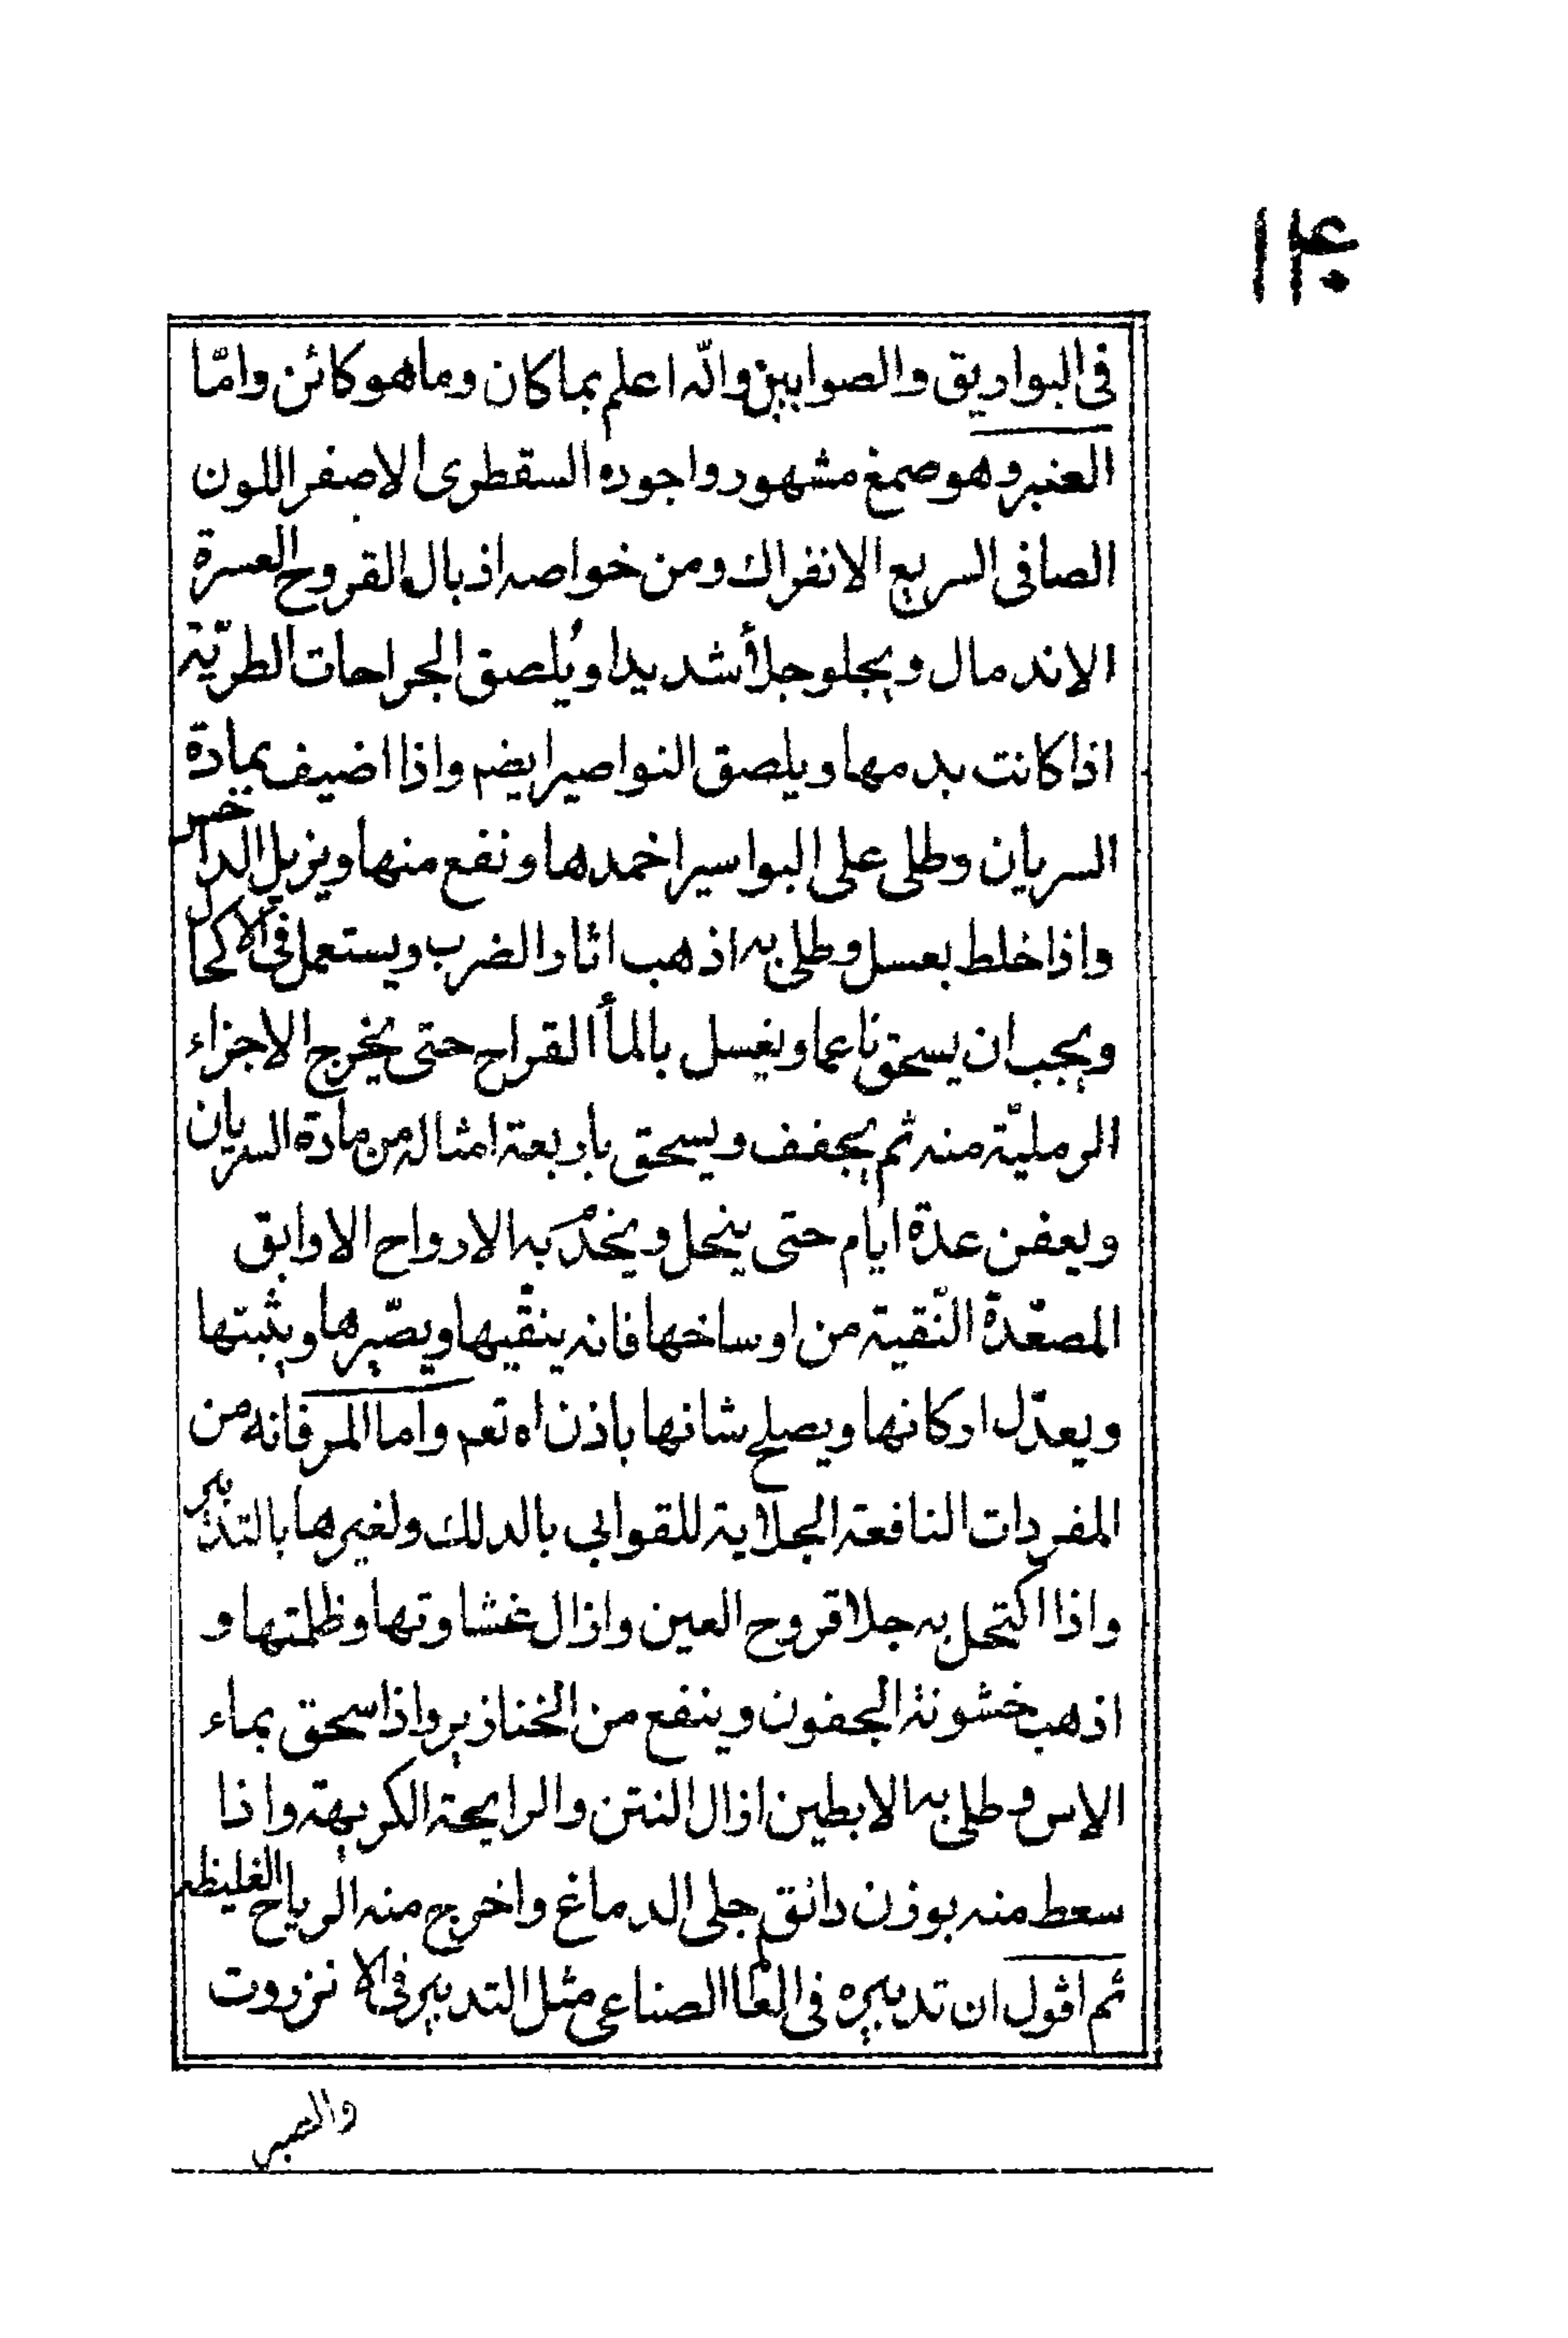 ١١۴٠
فى البواريق والصوابين والله اعلم بما كان وما هو كائن وامّا
العنبر وهو صمغ مشهور واجوده السقطرى الاصفر اللون
الصافى السريع الانفراك ومن خواصه اذبال القروح العسرة
الاندمال ويجلو جلأ شديدا ويُلصق الجراحات الطريّة
اذا كانت بدمها ويلصق النواصير ايضم واذا اضيف بمادة
السريان وطلى على البواسير اخمدها ونفع منها ويزيل الداخس
واذا خلط بعسل وطلى به اذهب اثار الضرب ويستعمل فى الاكحال
ويجب ان يسحق ناعما ويغسل بالمأ القراح حتى يخرج الاجزاء
الرمليّة منه ثم يجفف ويسحق باربعة امثاله من مادة السريان
ويعفن عدة ايام حتى ينحل ويخدم به الارواح الاوابق
المصعّدة النّقية من اوساخها فانه ينقّيها ويصّبرها ويثبتها
ويعدّل اركانها ويصلح شانها باذن اه تعم واما المر فانه من
المفردات النافعة الجلاية للقوابى بالدلك ولغيرها بالتدبير
واذا اكتحل به جلا قروح العين وازال غشاوتها وظلمتها و
اذهب خشونة الجفون وينفع من الخنازير واذا سحق بماء
الاس وطلى به الابطين ازال النتن والرايحة الكريهة واذا
سعط منه بوزن دانق جلى الدماغ واخرج منه الرياح الغليظه
ثم اقول ان تدبيره فى العالم الصناعى مثل التدبير فى الانزروت
والصبر